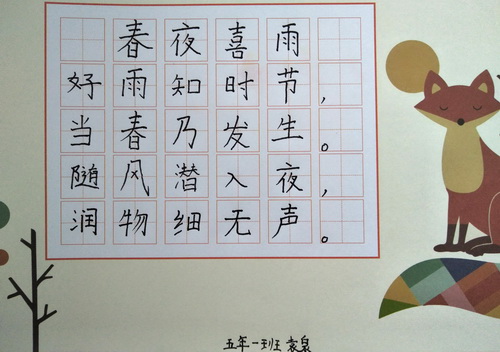 春夜喜雨
好雨知时节，
当春乃发生。
随风潜入夜，
润物细无声。
五年一班 袁泉